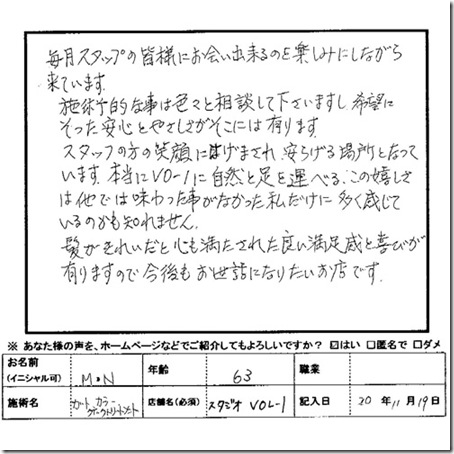 毎月スタッフの皆様にお会い出来るのを楽しみにしながら
来ています。
施術予的な事は色々と相談して下さいますし、希望に
そった安心とやさしさがそこには有ります。
スタッフの方の笑顔にはげまされ、安らげる場所となって
います。本当にVO-1に自然と足を運べる。この嬉しさ
は他では味わった事がなかった私だけに多く感じて
いるのかも知れません。
髪がきれいだと心も満たされた良い満足感と喜びが
有りますので今後もお世話になりたいお店です。
※ あなた様の声を、ホームページなどでご紹介してもよろしいですか? ☑はい □匿名で □ダメ
お名前 (イニシャル可) M・N 年齢 63 職業
施術名 カート、カラー トリートメント 店舗名(必須) スタジオ VOL-1 記入日 20 年 11 月 19 日